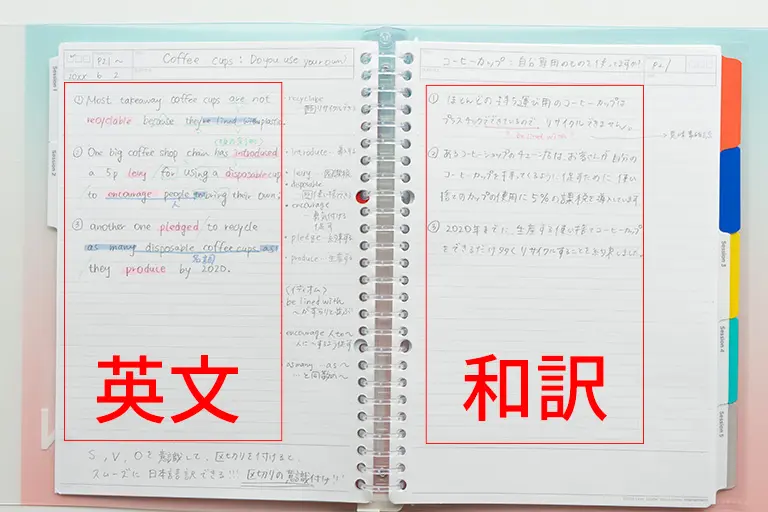 P21〜
Coffee cups : Do you use your own?
20XX 6 2
① Most takeaway coffee cups are not
recyclable because they're lined with plastic.
② One big coffee shop chain has introduced
a 5p levy for using a disposable cup
to encourage people to bring their own.
③ another one pledged to recycle
as many disposable coffee cups as
they produce by 2020.
名詞
英文
・recyclable
・introduce
・levy
・disposable
・encourage
勇気付ける
促す
・pledge
・produce - 生産する
(イディオム)
be lined with
encourage 人 to〜
人に〜するよう促す
as many as〜
〜と同数の〜
S, V, Oを意識して、区切りを付けると、
スムーズに日本語訳できる!!! 区切りの意識付け!!
コーヒーカップ:自分専用のものを使ってますか?
P21
① ほとんどの持ち運び用のコーヒーカップは
プラスチックでできているので、リサイクルできません。
be lined with
② あるコーヒーショップのチェーン店は、お客さんが自分の
コーヒーカップを持ってくるように促すために使い
捨てのカップの使用に5%の課税を導入しています
③ 2020年までに、生産する使い捨てコーヒーカップ
をできるだけ多くリサイクルすることを約束しました。
和訳
Session 1
Session 2
Session 3
Session 4
Session 5